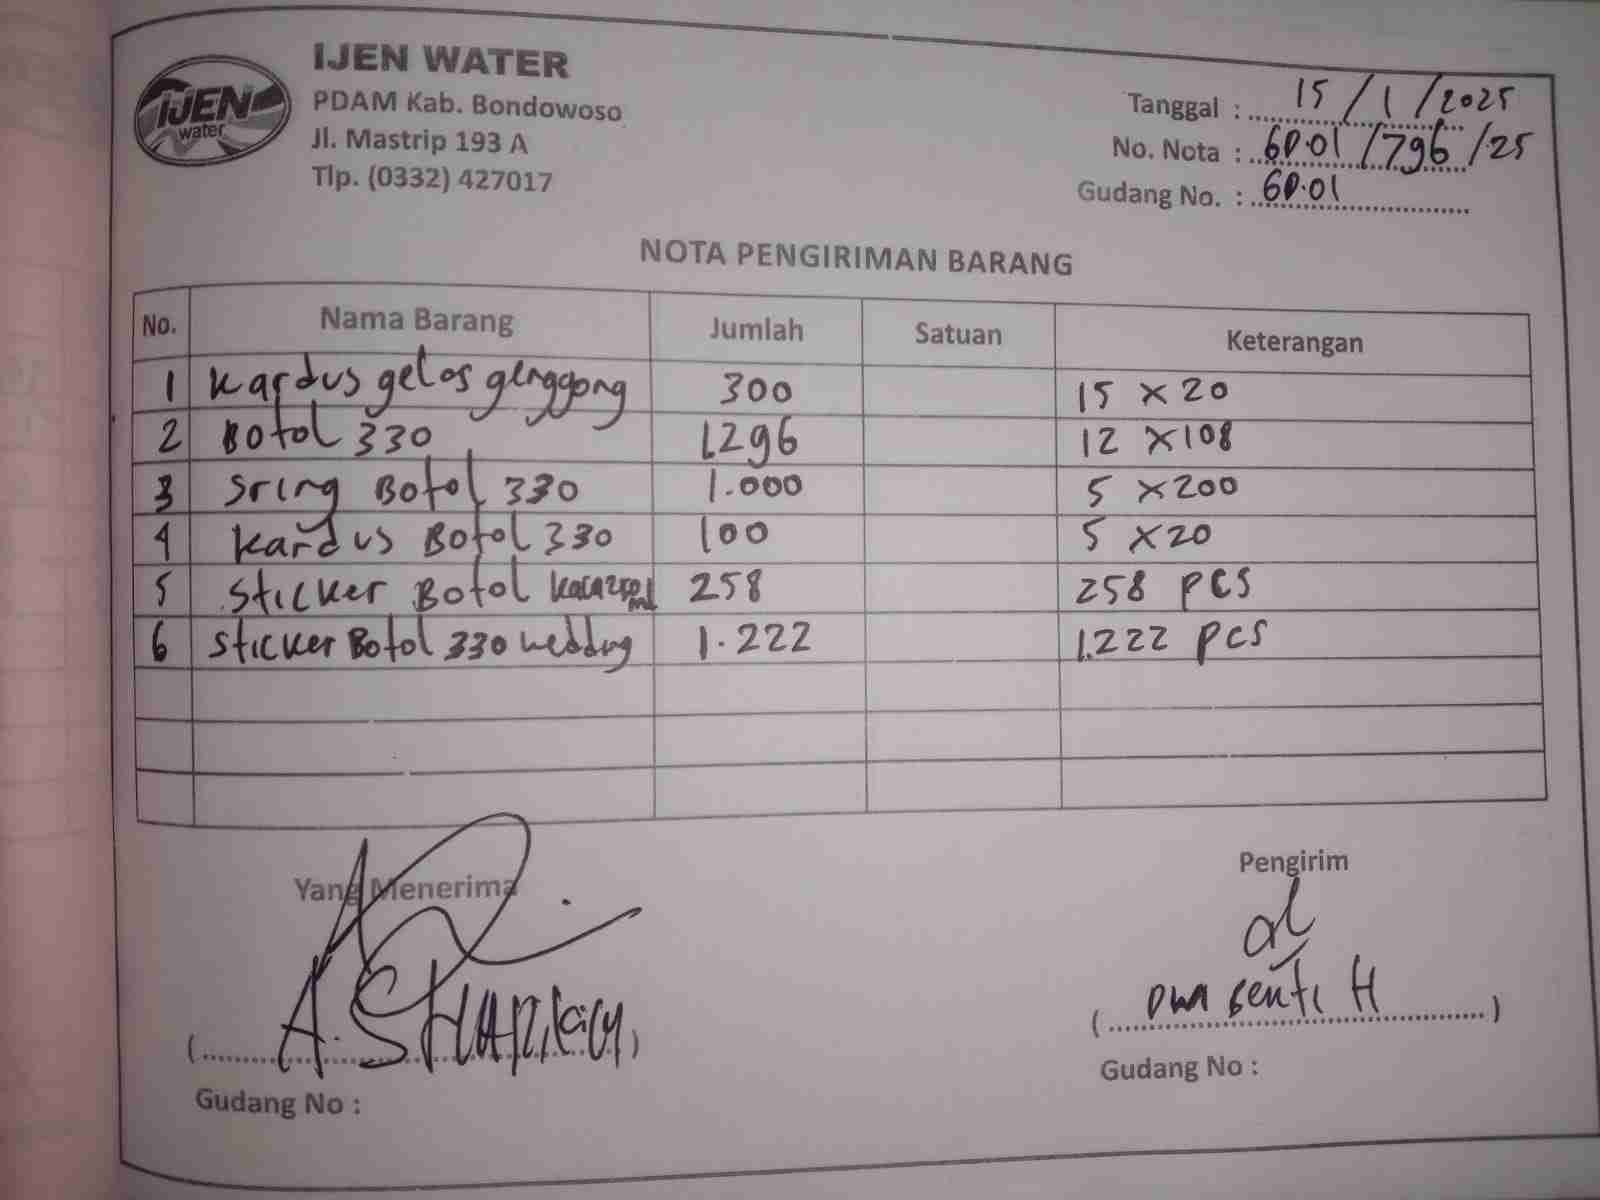 IJEN WATER
PDAM Kab. Bondowoso
Jl. Mastrip 193 A
Tlp. (0332) 427017
IJEN
water
Tanggal : 15 / 1 / 2025
No. Nota : GD.01 / 796 / 25
Gudang No. : GD.01
NOTA PENGIRIMAN BARANG
No. Nama Barang Jumlah Satuan Keterangan
1 Kardus gelas genggong 300 15 x 20
2 Botol 330 1.296 12 x 108
3 Sring Botol 330 1.000 5 x 200
4 Kardus Botol 330 100 5 x 20
5 Sticker Botol 258 258 pcs
6 Sticker Botol 330 wedding 1.222 1.222 pcs
Yang Menerima Pengirim
Gudang No : Gudang No :